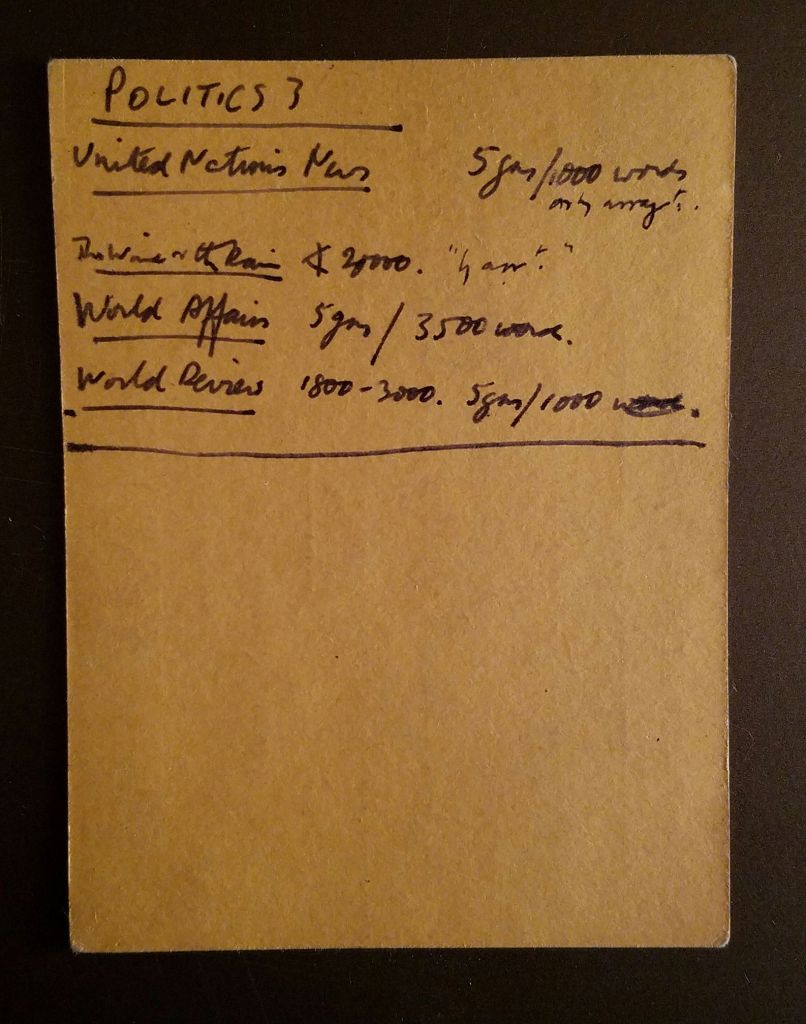 POLITICS 3
United Nations News 5gns/1000 words
only arrangt.
The Wind & the Rain 2000. "by arrt."
World Affairs 5gns/3500 words.
World Review 1800-3000. 5gns/1000 words.